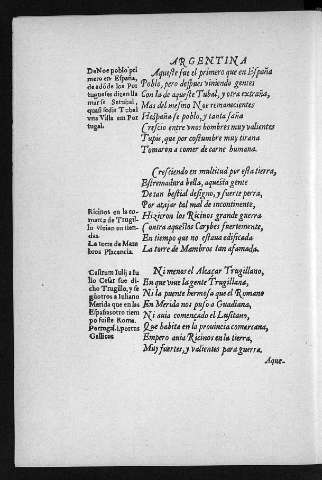 ARGENTINA
De Noe poblo pri
mero en España,
de adóde los Por
tugueses dizen lla
marse Setubal,
quasi sedis Tubal
una Villa em Por
tugal.
Aqueste fue el primero que en España
Poblo, pero despues viniendo gentes
Con la de aqueste Tubal, y otra extraña,
Mas del mesmo Noe remanecientes
Hespaña se poblo, y tanta saña
Crescio entre vnos hombres muy valientes
Tupis, que por costumbre muy tirana
Tomaron a comer de carne humana.
Ricinos en la co-
marca de Trugil-
lo viuian en tien-
das.
La torre de Mam
bros Placencia.
Cresciendo en multitud por esta tierra,
Estremadura bella, aquesta gente
De tan bestial designo, y fuerte perra,
Por atajar tal mal de incontinente,
Hizieron los Ricinos grande guerra
Contra aquestos Carybes fuertemente,
En tiempo que no estaua edificada
La torre de Mambros tan afamada.
Castrum Iulij a Iu
lio Cesar fue di-
cho Trugillo, y se
Iuliano
Merida que en las
Españas otro tiem
po fuisté Roma.
Portogal, i portus
Gallicos
Ni menos el Alcaçar Trugillano,
En que viue la gente Trugillana,
Ni la puente hermosa que el Romano
En Merida nos puso a Guadiana,
Ni auia començado el Lusitano,
Que habita en la prouincia comarcana,
Empero auia Ricinos en la tierra,
Muy fuertes, y valientes para guerra.
Aque-